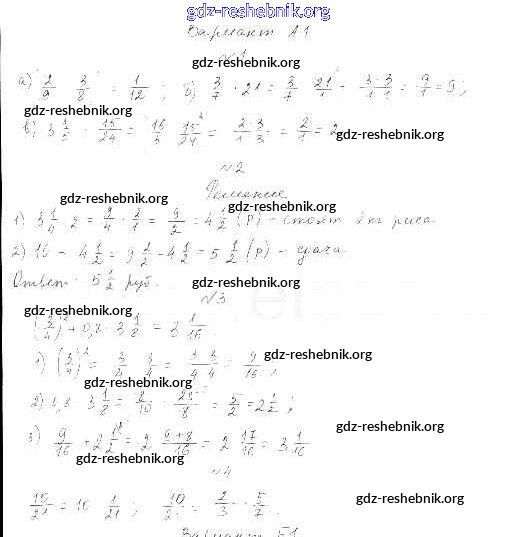 gdz-reshebnik.org
Вариант А1
gdz-reshebnik.org
№1
а) 2/9 · 3/8 = 1/12 ; б) 3/7 · 21 = 3/7 · 21/1 = 3·3/1·1 = 9/1 = 9;
gdz-reshebnik.org
в) 3 1/5 · 15/24 = 16/5 · 15/24 = 2·3/1·3 = 2/1 = 2
gdz-reshebnik.org
№2
gdz-reshebnik.org
Решение
gdz-reshebnik.org
1) 1/4 · 2 = 9/4 · 2/1 = 9/2 = 4 1/2 (р) - стоят 2 кг риса
2) 10 - 4 1/2 = 9 1/2 - 4 1/2 = 5 1/2 (р) - сдача
Ответ: 5 1/2 руб.
gdz-reshebnik.org
№3
gdz-reshebnik.org
(3/4)² + 0,8 · 3 1/8 = 3 1/16
1) (3/4)² = 3/4 · 3/4 = 3·3/4·4 = 9/16 ,
gdz-reshebnik.org
gdz-reshebnik.org
2) 0,8 · 3 1/8 = 8/10 · 25/8 = 5/2 = 2 1/2 ;
gdz-reshebnik.org
3) 9/16 + 2 1/2 = 2 9+8/16 = 2 17/16 = 3 1/16
gdz-reshebnik.org
№4
gdz-reshebnik.org
10/21 = 10 · 1/21 ; 10/21 = 2/3 · 5/7 .
Вариант Б1